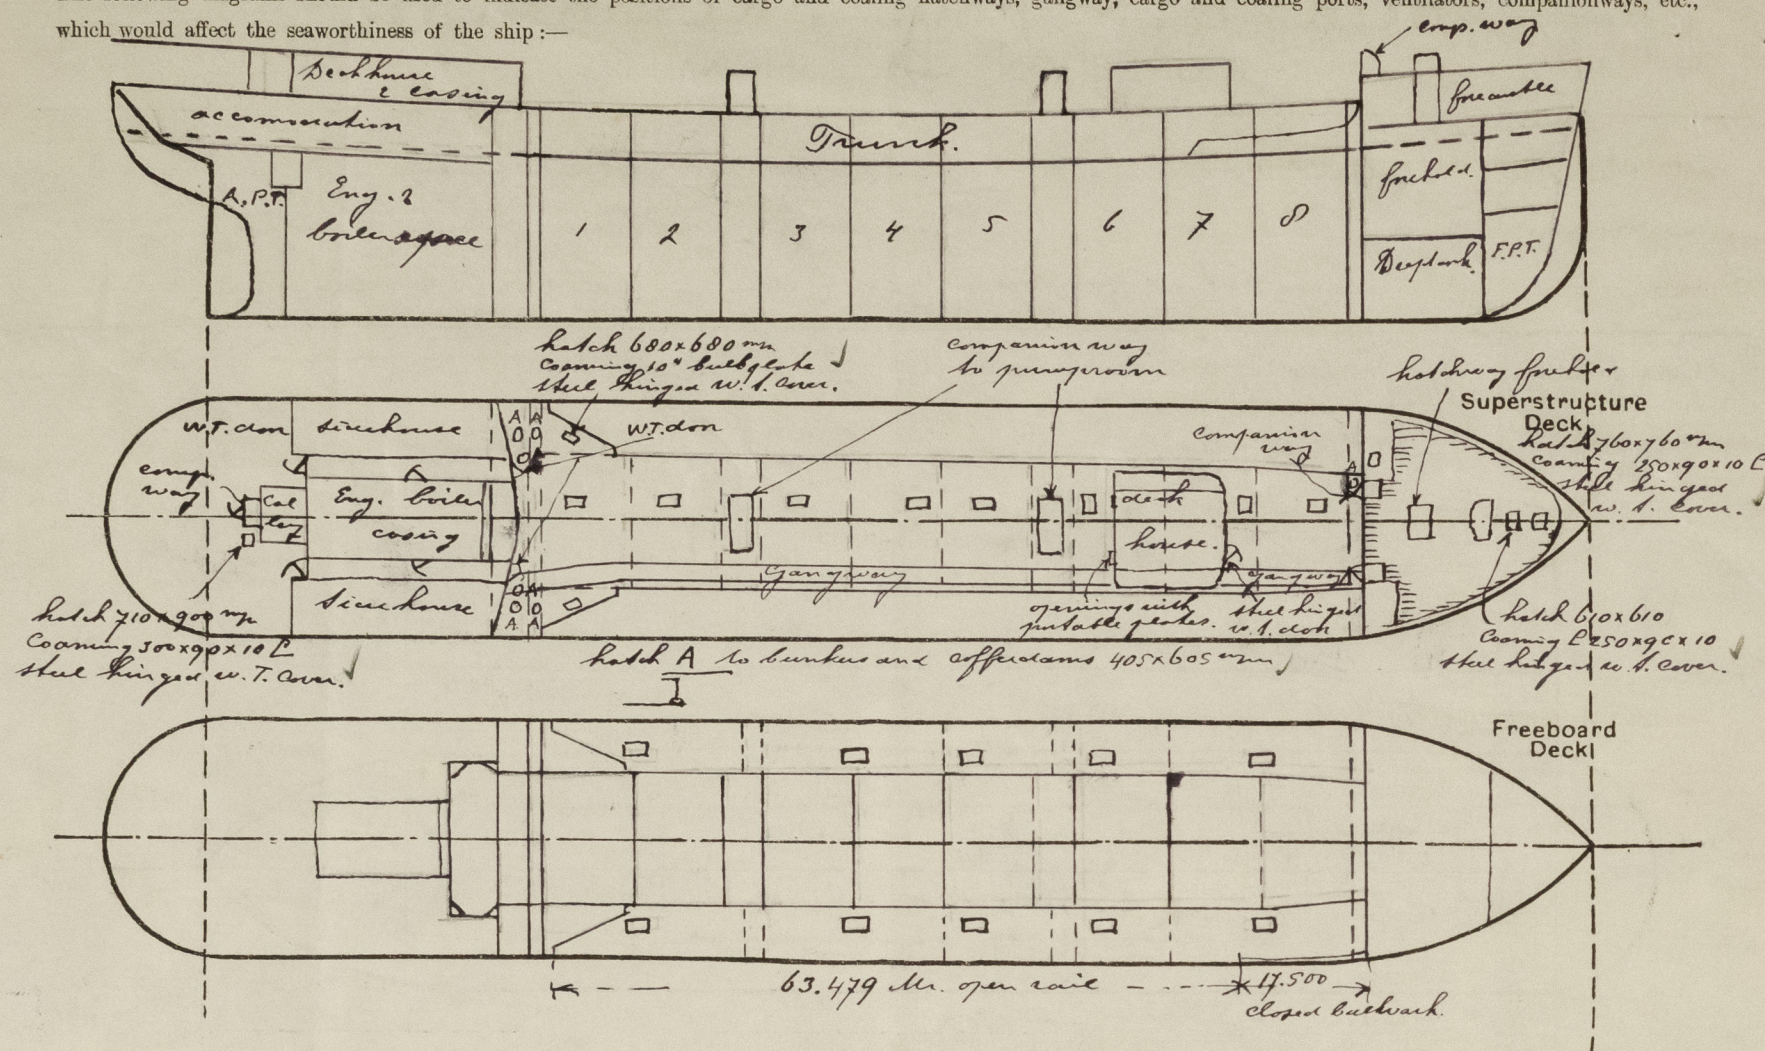 which would affect the seaworthiness of the ship :—
comp. way
Deckhouse
& casing
forecastle
accomodation
Trunk.
forehold.
A.P.T.
Eng. &
boilerspace
1 2 3 4 5 6 7 8
Deeptank.
F.P.T.
hatch 680x680 mm
coaming 10" bulbplate
steel hinged w.t. cover.
companion way
to pumproom
hatchway forehold
Superstructure
Deck
W.T. door
sidehouse
A A
W.T. door
companion
way
hatch 760x760 mm
coaming 250x90x10 [
steel hinged
w.t. cover.
comp.
way
Gal
ley
Eng. boiler
casing
deck
house.
A
gangway
gangway
sidehouse
A
A A
openings with
portable plates.
steel hinged
w.t. door
hatch 710x900 mm
coaming 300x90x10 [
steel hinged w.T. cover.
hatch 610x610
coaming [ 250x90x10
steel hinged w.t. cover.
hatch A to bunkers and cofferdams 405x605 mm
Freeboard
Deck
63.479 M. open rail
17.500
closed bulwark.